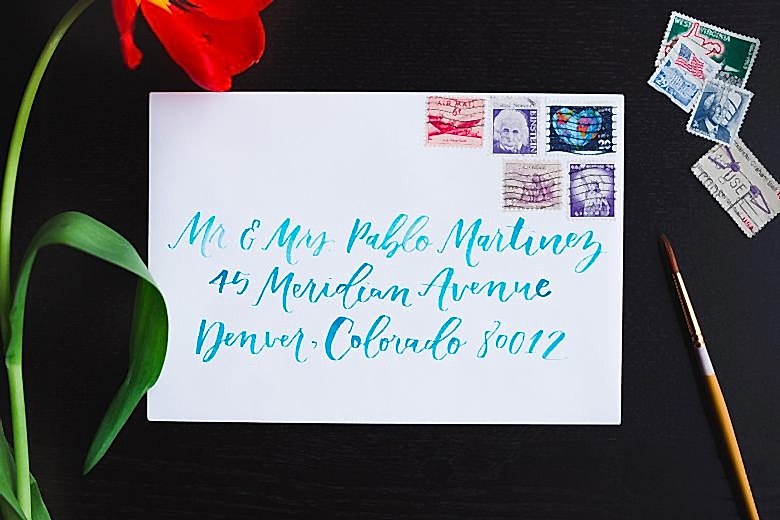 AIR MAIL
6¢
EINSTEIN
Mr & Mrs Pablo Martinez
45 Meridian Avenue
Denver, Colorado 80012
WEST VIRGINIA
USE